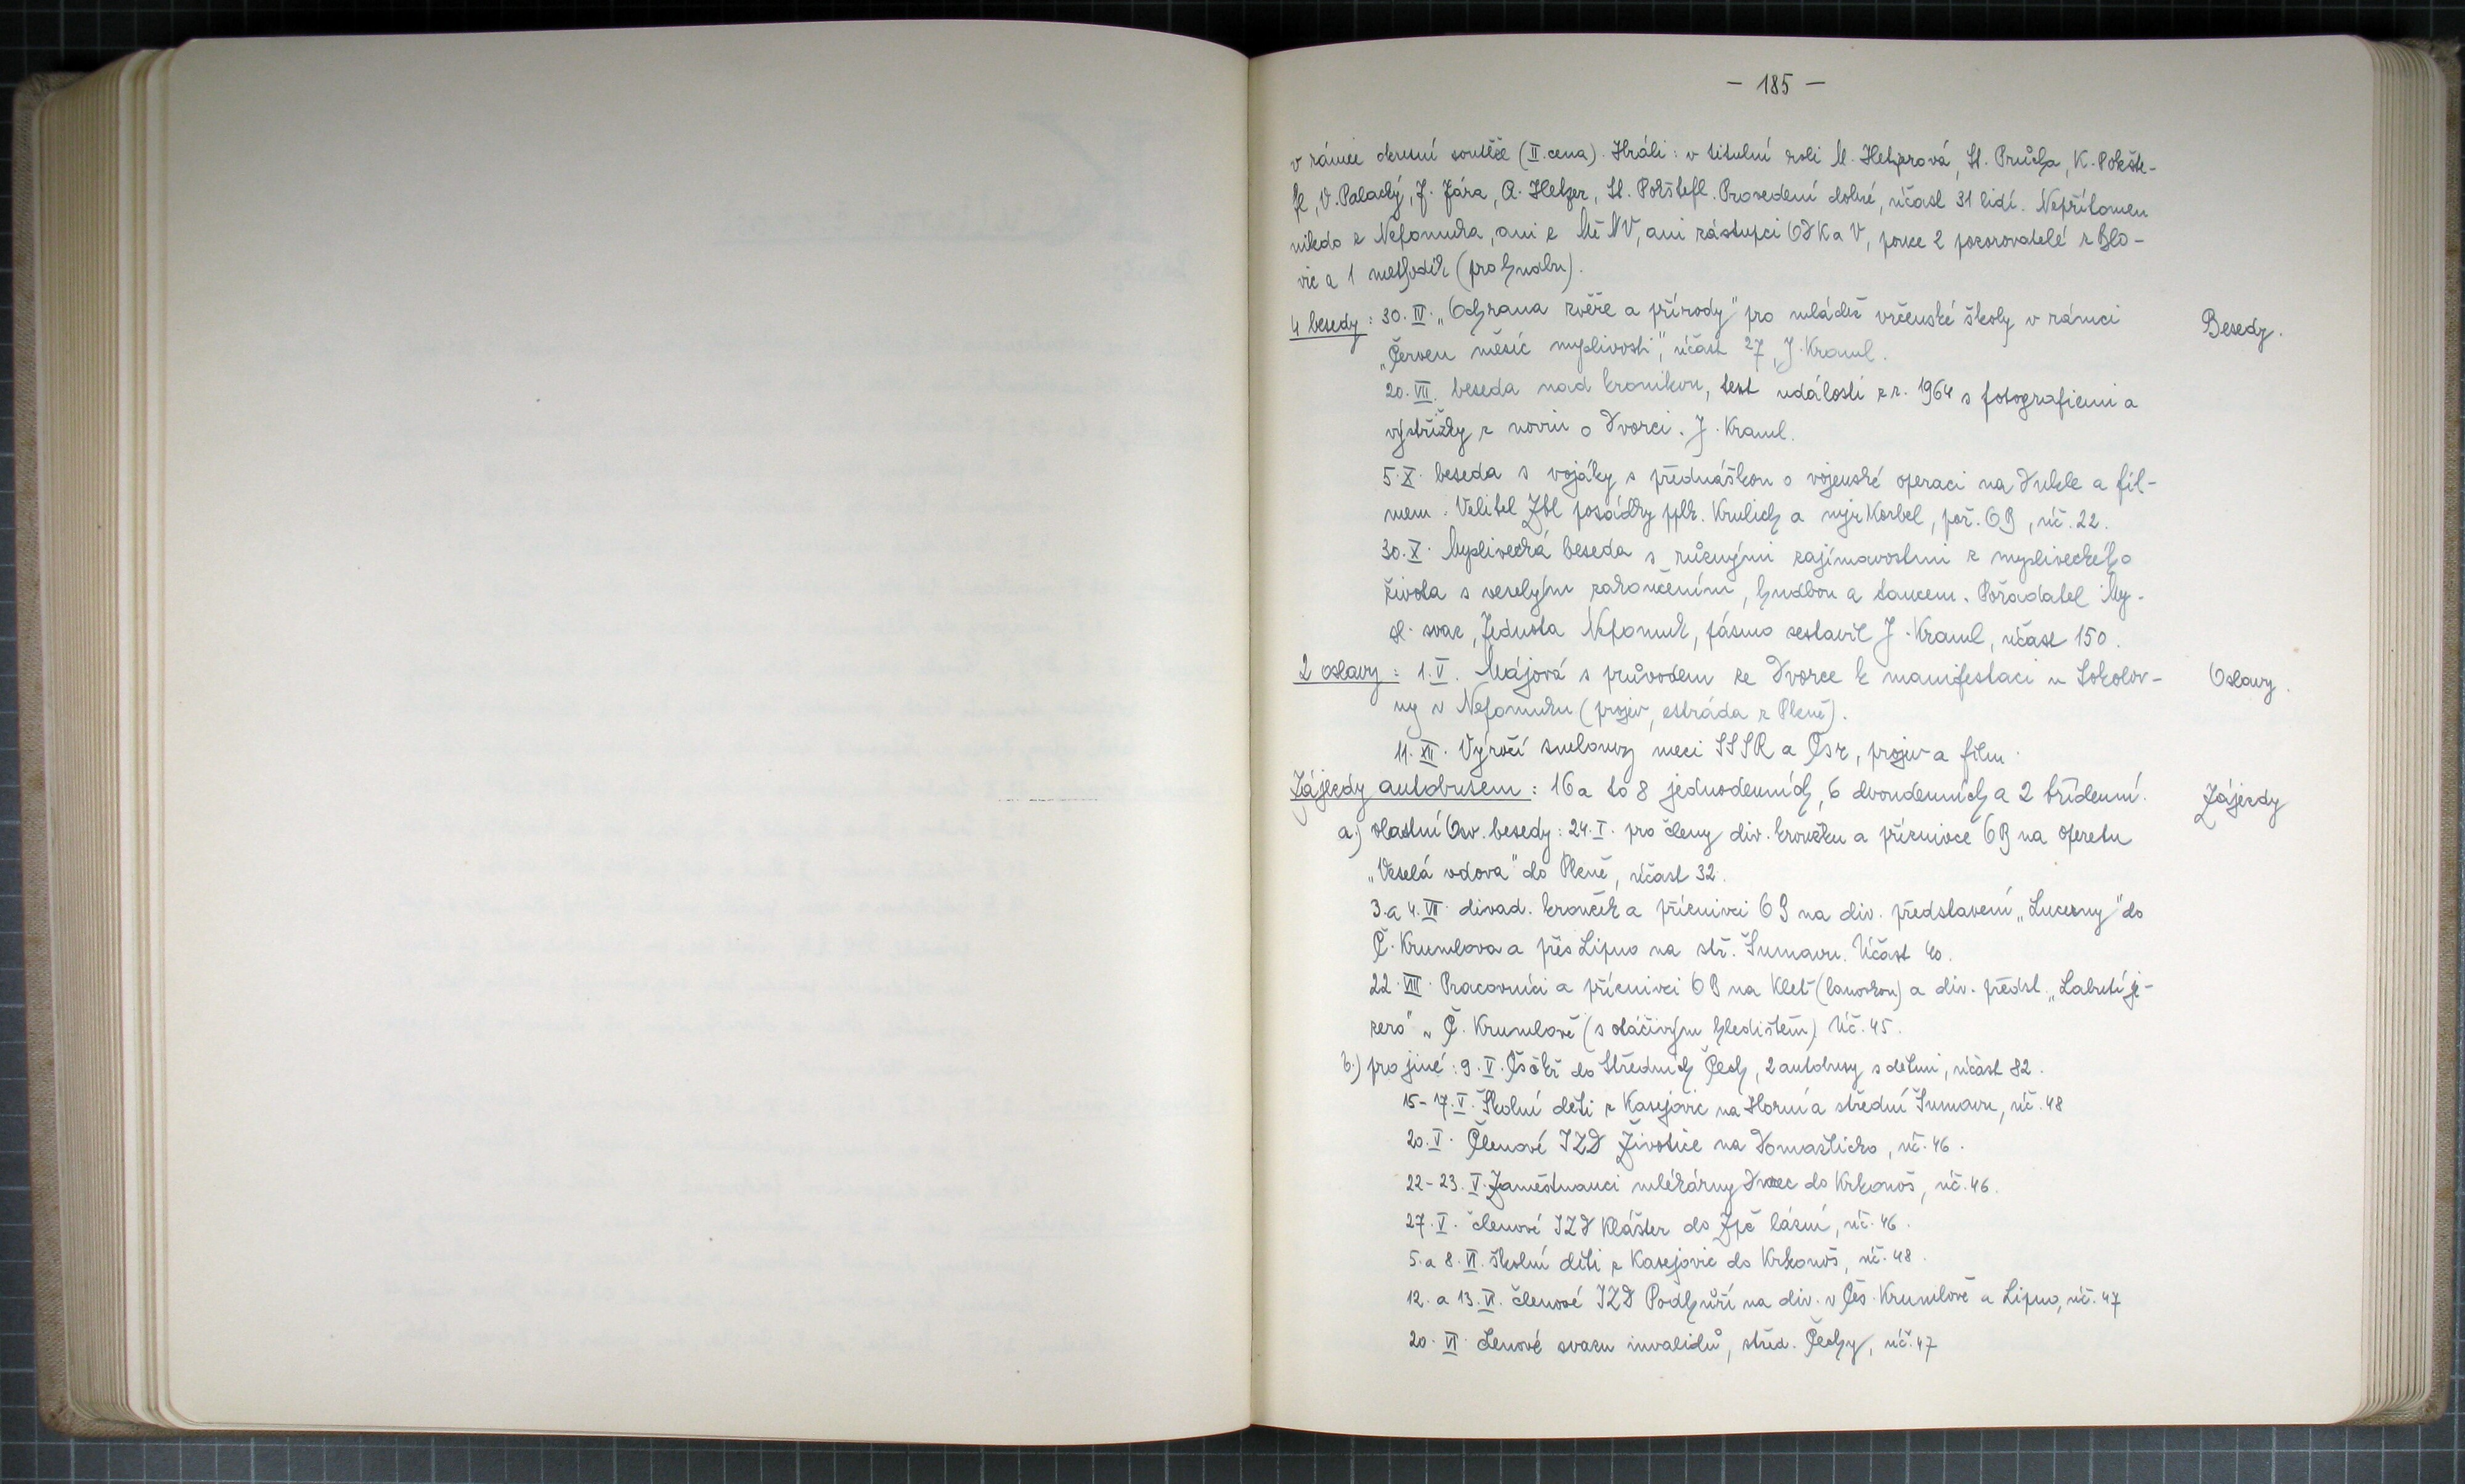 - 185 -
v rámci okresní soutěže (II. cena). Hráli: v titulní roli M. Helzerová, St. Průcha, K. Pokšte-
fl, V. Palacký, J. Jára, A. Helzer, St. Pokštefl. Provedení dobré, účast 31 lidí. Nepřítomen
nikdo z Nepomuka, ani z MěNV, ani zástupci ODKaV, pouze 2 pozorovatelé z Blo-
vic a 1 methodik (pro hudbu).
4 besedy: 30. IV. „Ochrana zvěře a přírody" pro mládež vrčenské školy v rámci
Besedy.
„Červen měsíc myslivosti", účast 27, J. Kraml.
20. VII. beseda nad kronikou, text událostí z r. 1964 s fotografiemi a
výstřižky z novin o Dvorci. J. Kraml.
5. X. beseda s vojáky s přednáškou o vojenské operaci na Dukle a fil-
mem. Velitel Zbl posádky pplk. Krulich a mjr Korbel, poř. OB, úč. 22.
30. X. Myslivecká beseda s různými zajímavostmi z mysliveckého
života s veselým zakončením, hudbou a tancem. Pořadatel My-
sl. svaz, Jednota Nepomuk, pásmo sestavil J. Kraml, účast 150.
2 oslavy: 1. V. Májová s průvodem ze Dvorce k manifestaci u Sokolov-
Oslavy.
ny v Nepomuku (projev, estráda z Plzně).
11. XII. Výročí smlouvy mezi SSSR a Čsr, projev a film.
Zájezdy autobusem: 16 a to 8 jednodenních, 6 dvoudenních a 2 třídenní.
Zájezdy
a.) vlastní Osv. besedy: 24. I. pro členy div. kroužku a příznivce OB na operetu
„Veselá vdova" do Plzně, účast 32.
3. a 4. VII. divad. kroužek a příznivci OB na div. představení „Lucerny" do
Č. Krumlova a přes Lipno na stř. Šumavu. Účast 40.
22. VIII. Pracovníci a příznivci OB na Kleť (lanovkou) a div. předst. „Labutí je-
zero" v Č. Krumlově (s otáčivým hledištěm) Úč. 45.
b.) pro jiné: 9. V. Čsčk do Středních Čech, 2 autobusy s dětmi, účast 82.
15-17. V. Školní děti z Kasejovic na Horní a střední Šumavu, úč. 48
20. V. Členové JZD Životice na Domažlicko, úč. 46.
22-23. V. Zaměstnanci mlékárny Dvorec do Krkonoš, úč. 46.
27. V. členové JZD Klášter do Zpč lázní, úč. 46.
5. a 8. VI. školní děti z Kasejovic do Krkonoš, úč. 48.
12. a 13. VI. členové JZD Podhůří na div. v Čes. Krumlově a Lipno, úč. 47
20. VI. členové svazu invalidů, střed. Čechy, úč. 47